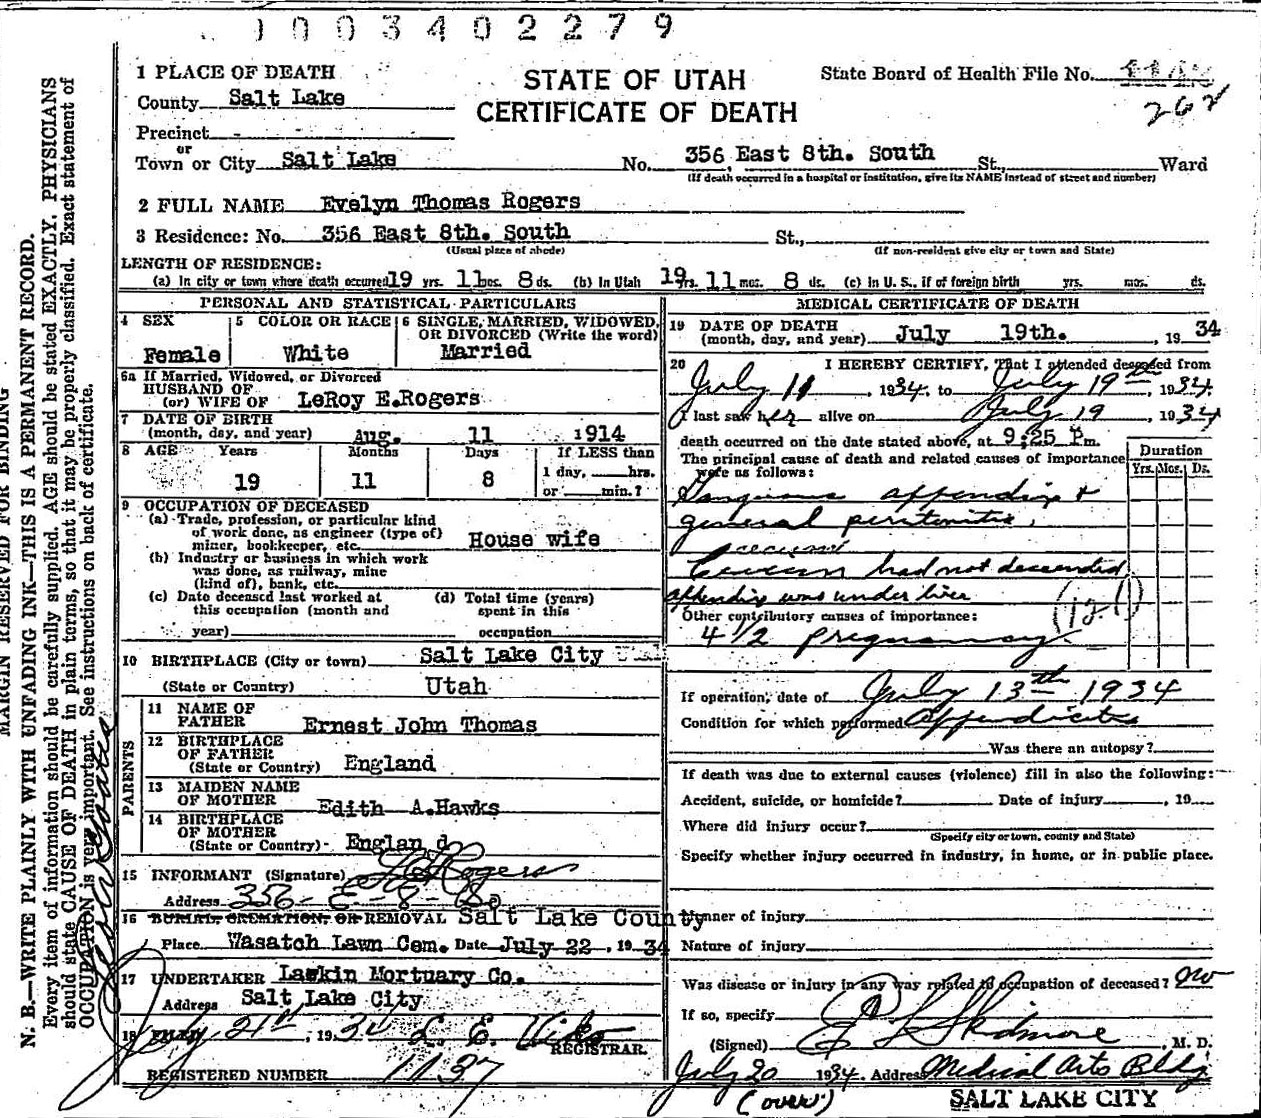 1003402279
1 PLACE OF DEATH
STATE OF UTAH
CERTIFICATE OF DEATH
State Board of Health File No.
County Salt Lake
Precinct
or
Town or City Salt Lake No. 356 East 8th. South St., Ward
(If death occurred in a hospital or institution, give its NAME instead of street and number)
2 FULL NAME Evelyn Thomas Rogers
3 Residence: No. 356 East 8th. South St.,
(Usual place of abode) (If non-resident give city or town and State)
LENGTH OF RESIDENCE:
(a) In city or town where death occurred 19 yrs. 11 mos. 8 ds. (b) In Utah 19 yrs. 11 mos. 8 ds. (c) In U. S., if of foreign birth yrs. mos. ds.
PERSONAL AND STATISTICAL PARTICULARS
4 SEX Female
5 COLOR OR RACE White
6 SINGLE, MARRIED, WIDOWED, OR DIVORCED (Write the word) Married
6a If Married, Widowed, or Divorced
HUSBAND OF
(or) WIFE OF LeRoy E.Rogers
7 DATE OF BIRTH
(month, day, and year) Aug. 11 1914
8 AGE Years Months Days If LESS than
1 day, hrs.
19 11 8 or min.?
9 OCCUPATION OF DECEASED
(a) Trade, profession, or particular kind
of work done, as engineer (type of)
miner, bookkeeper, etc. House wife
(b) Industry or business in which work
was done, as railway, mine
(kind of), bank, etc.
(c) Date deceased last worked at
this occupation (month and
year)
(d) Total time (years)
spent in this
occupation
10 BIRTHPLACE (City or town) Salt Lake City Utah
(State or Country) Utah
PARENTS
11 NAME OF
FATHER Ernest John Thomas
12 BIRTHPLACE
OF FATHER
(State or Country) England
13 MAIDEN NAME
OF MOTHER Edith A.Hawks
14 BIRTHPLACE
OF MOTHER
(State or Country) Englan d
15 INFORMANT (Signature) Rogers
Address 356 - E - 8 - So
16 BURIAL, CREMATION, OR REMOVAL Salt Lake County
Place Wasatch Lawn Cem. Date July 22 , 19 34
17 UNDERTAKER Laskin Mortuary Co.
Address Salt Lake City
18 FILED July 21st, 1934 REGISTRAR.
REGISTERED NUMBER 1137
MEDICAL CERTIFICATE OF DEATH
19 DATE OF DEATH
(month, day, and year) July 19th. , 19 34
20 I HEREBY CERTIFY, That I attended deceased from
July 11 , 1934, to July 19th , 1934.
I last saw her alive on July 19 , 1934
death occurred on the date stated above, at 9;25 P m.
The principal cause of death and related causes of importance
were as follows:
Duration
Yrs. Mos. Ds.
Gangrenous appendix &
general peritonitis.
cecum
had not descended
appendix was under liver
Other contributory causes of importance:
4 1/2 pregnancy.
If operation, date of July 13th 1934
Condition for which performed Appendicitis
Was there an autopsy?
If death was due to external causes (violence) fill in also the following:
Accident, suicide, or homicide? Date of injury , 19
Where did injury occur?
(Specify city or town, county and State)
Specify whether injury occurred in industry, in home, or in public place.
Manner of injury
Nature of injury
Was disease or injury in any way related to occupation of deceased? no
If so, specify
(Signed) Skidmore , M. D.
July 20 1934. Address Medical Arts Bldg
(over) SALT LAKE CITY
MARGIN RESERVED FOR BINDING
N. B.—WRITE PLAINLY WITH UNFADING INK—THIS IS A PERMANENT RECORD.
Every item of information should be carefully supplied. AGE should be stated EXACTLY. PHYSICIANS
should state CAUSE OF DEATH in plain terms, so that it may be properly classified. Exact statement of
OCCUPATION is very important. See instructions on back of certificate.